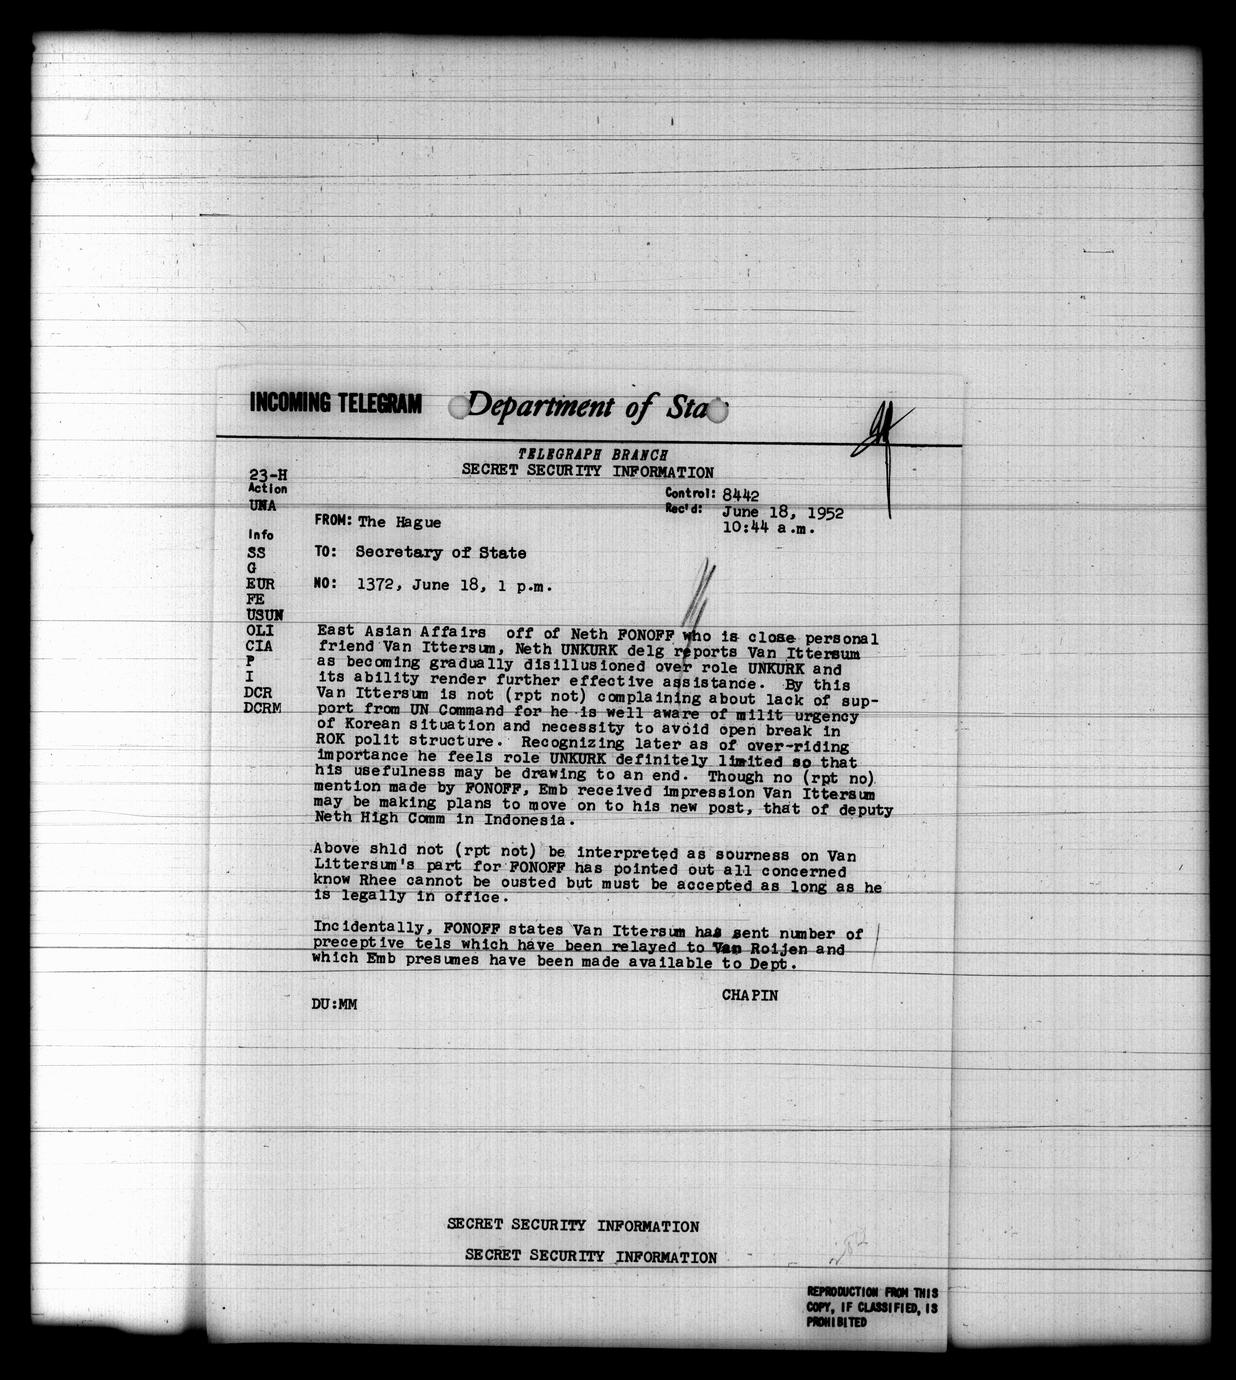 INCOMING TELEGRAM Department of Sta
TELEGRAPH BRANCH
SECRET SECURITY INFORMATION
23-H
Action
UNA
Control: 8442
Rec'd: June 18, 1952
10:44 a.m.
FROM: The Hague
Info
SS
G
EUR
FE
USUN
OLI
CIA
P
I
DCR
DCRM
TO: Secretary of State
NO: 1372, June 18, 1 p.m.
East Asian Affairs off of Neth FONOFF who is close personal
friend Van Ittersum, Neth UNKURK delg reports Van Ittersum
as becoming gradually disillusioned over role UNKURK and
its ability render further effective assistance. By this
Van Ittersum is not (rpt not) complaining about lack of sup-
port from UN Command for he is well aware of milit urgency
of Korean situation and necessity to avoid open break in
ROK polit structure. Recognizing later as of over-riding
importance he feels role UNKURK definitely limited so that
his usefulness may be drawing to an end. Though no (rpt no)
mention made by FONOFF, Emb received impression Van Ittersum
may be making plans to move on to his new post, that of deputy
Neth High Comm in Indonesia.
Above shld not (rpt not) be interpreted as sourness on Van
Littersum's part for FONOFF has pointed out all concerned
know Rhee cannot be ousted but must be accepted as long as he
is legally in office.
Incidentally, FONOFF states Van Ittersum has sent number of
preceptive tels which have been relayed to Van Roijen and
which Emb presumes have been made available to Dept.
CHAPIN
DU:MM
SECRET SECURITY INFORMATION
SECRET SECURITY INFORMATION
REPRODUCTION FROM THIS
COPY, IF CLASSIFIED, IS
PROHIBITED